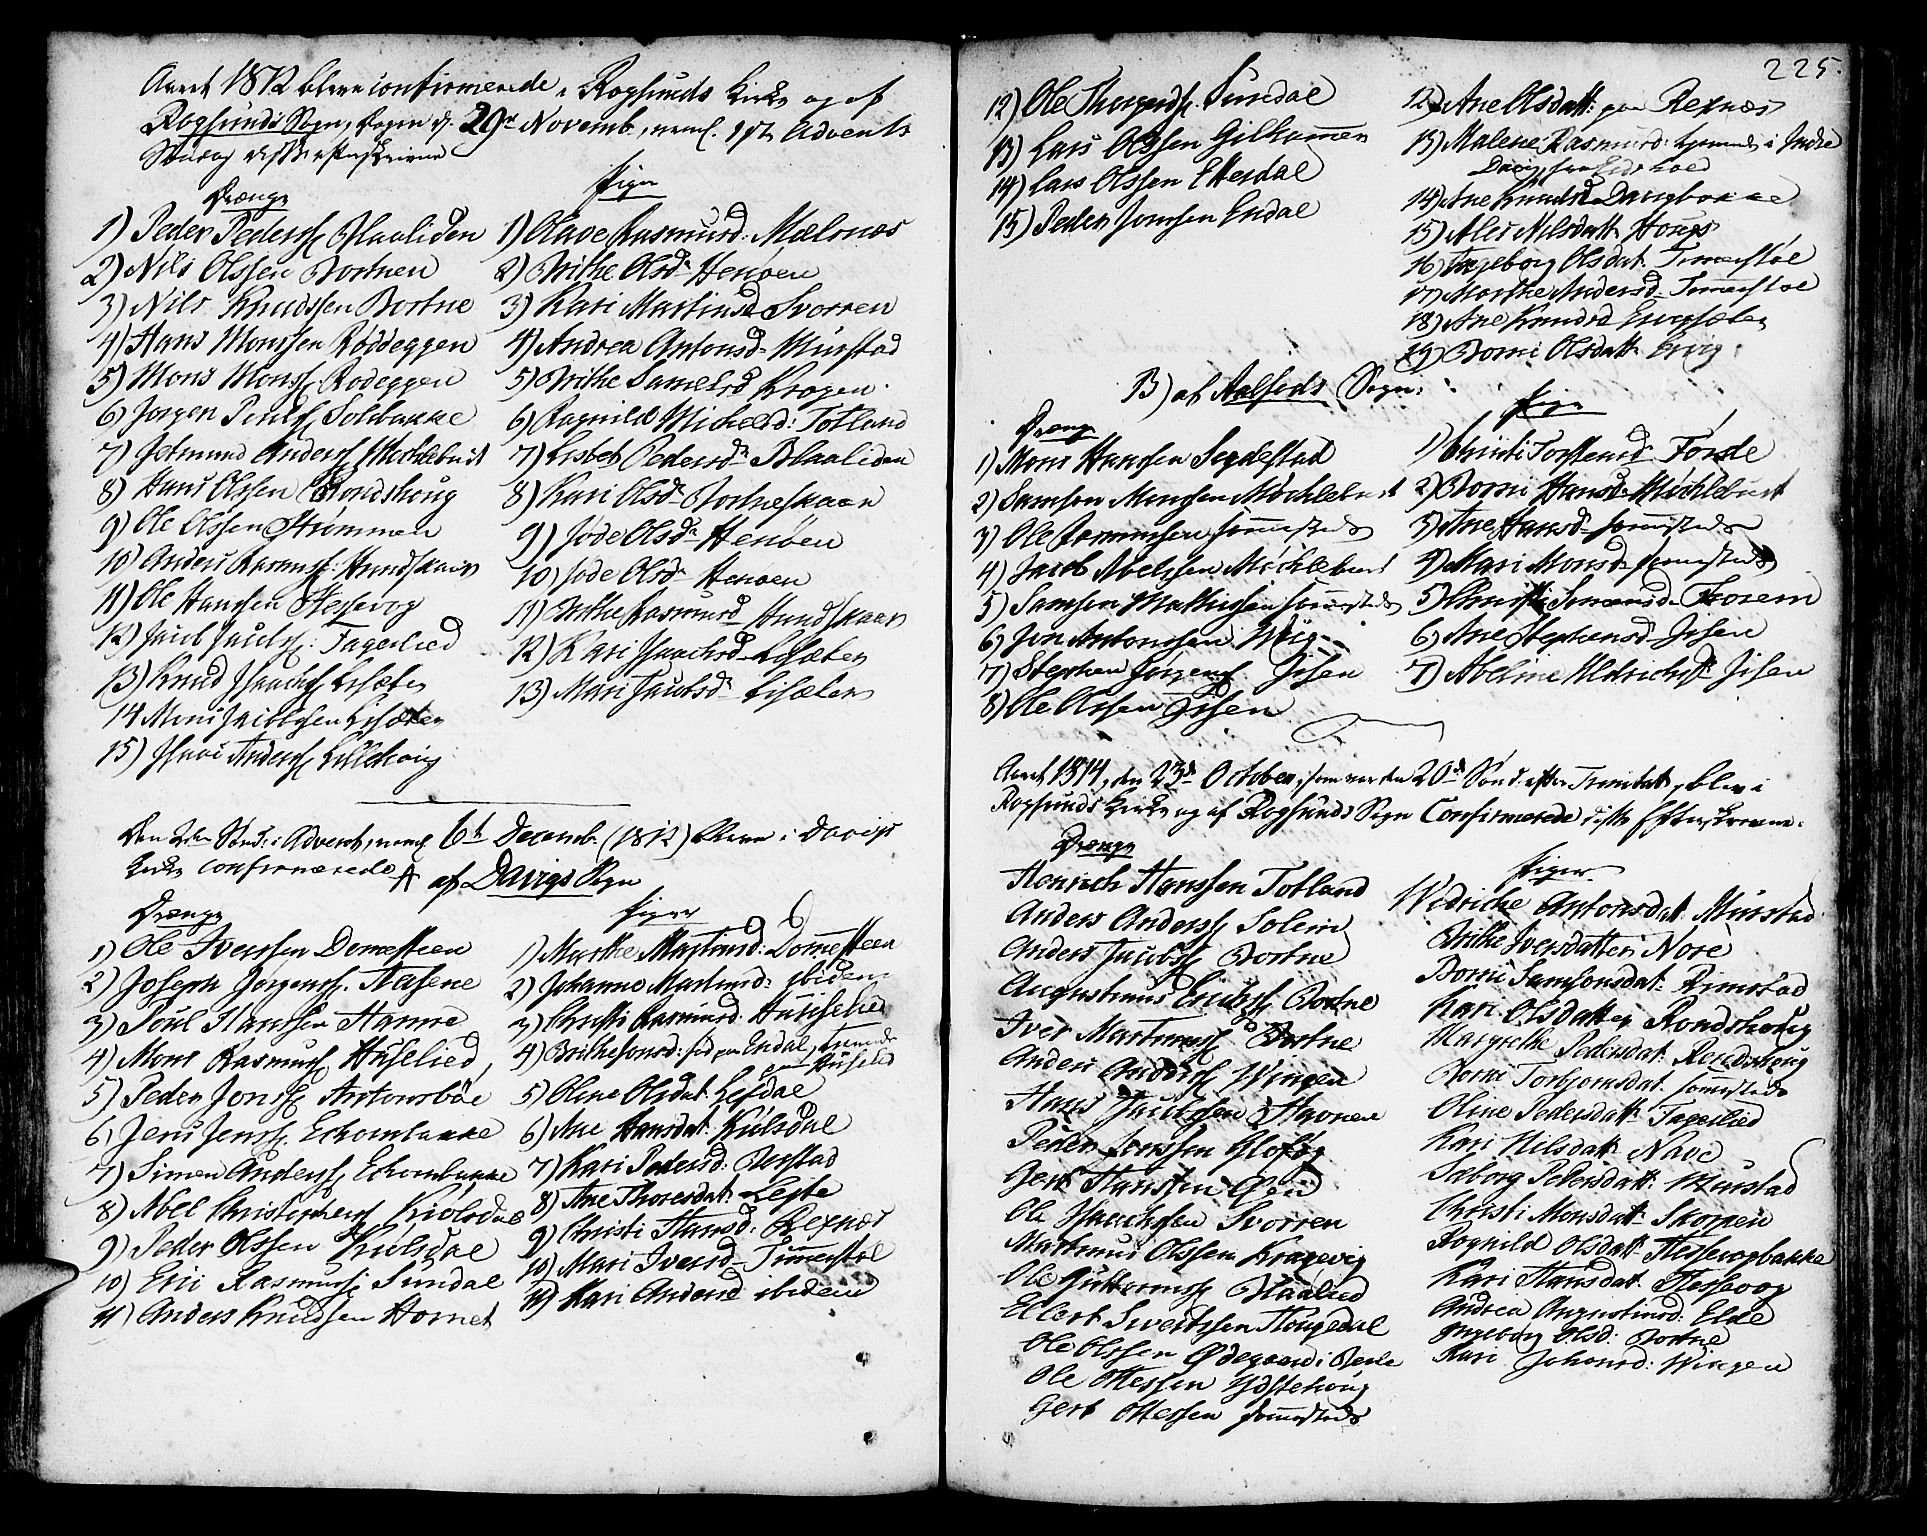 Aaret 1812 bleve confirmerede i Rogsunds Kirke og af
Rogsunds Sogn, Dagen d. 29de Novemb., neml. 1ste Advents
Søndag
Drænge
1) Peder Peders. Blaaliden
2) Nils Olssen Bortnen
3) Nils Knudssen Bortne
4) Hans Monssen Røddeggen
5) Mons Monss. Rodeggen
6) Jørgen Peders. Solbakke
7) Jetmund Anders. Møchlebust
8) Hans Olssen Rondshoug
9) Ole Olssen Strømmen
10) Anders Rasmuss. Hundskaar
11) Ole Hanssen Hessevog
12) Jacob Jacobs. Fagerlied
13) Knud Isaachs. Lisæter
14 Mons Jacobssen Lisæter
15) Isaac Anders. Lillehoug
Piger
1) Olave Rasmusd: Mælsnæs
2) Brithe Olsd. Henøen
3) Kari Martinusd. Svorren
4) Andrea Antonsd. Murstad
5) Brithe Samelsd Krogen
6) Ragnild Michelsd: Totland
7) Lisbet Pedersd. Blaaliden
8) Kari Olsd. Bortneskaar
9) Jøde Olsd. Henöen
10) Jøde Olsd. Henøen
11) Brithe Rasmusd Hundskaar
12) Kari Isaachsd. Lisæter
13) Mari Jacobsd. Lisæter
Den 2den Sønd: i Advent, neml. 6te Decemb. (1812) bleve i Davigs
Kirke confirmerede A af Davigs Sogn
Drænge
1) Ole Iverssen Domesteen
2) Joseph Jørgenss. Aasene
3) Poul Hanssen Hamre
4) Mons Rasmuss. Huselied
5) Peder Jonss. Antonsbøe
6) Jens Jenss. Echornbakke
7) Simen Anderss. Echornbakke
8) Abel Christophers. Kiolsdal
9) Peder Olssen Kiølsdal
10) Eric Rasmuss. Sundal
11) Anders Knudssen Hornet
Piger
1) Marthe Martinusd: Domesteen
2) Johanne Martinusd: ibidem
3) Christi Rasmusd. Huuselied
4) Brithe Jonsd: fød paa Endal, tienende paa Huselied
5) Oline Olsdat. Lefdal
6) Ane Hansdat. Kiilsdal
7) Kari Pedersd: Berstad
8) Ane Thoresdat. Leste
9) Christi Hansd: Rexnæs
10) Mari Iversd. Timerstøl
11) Kari Andersd ibidem
225.
12) Ole Thorgerds. Sundal
13) Lars Olssen Gilhammer
14) Lars Olssen Efterdal
15) Peder Jonssen Endal
12) Ane Olsdatt. paa Rexnæs
13) Malene Rasmusd: hjemme i Indre
14) Ane Knudsd. Davigbakke
15) Ales Nilsdatt. Hougs
16) Ingeborg Olsdat. Timerstøl
17) Marthe Andersd. Timerstøl
18) Ane Knudsd
19) Borni Olsdatt. Ervig
B) af Aalfods Sogn:
Drænge
1) Mons Hanssen Seydestad
2) Samson Monssen Møchlebust
3) Ole Rasmussen sammesteds
4) Jacob Abelssen Møchlebust
5) Samson Mathiassen sammesteds
6) Jon Antonssen Wiig
7) Stephen Jørgens. Jisen
8) Ole Olssen Jisen
Piger
1) Christi Torstensd. Førde
2) Borni Hansd. Møchlebust
3) Ane Hansd. sammesteds
4) Mari Monsd. sammesteds
5) Christi Simonsd. Thorem
6) Ane Stephensd. Jisen
7) Abeline Uldrichsd. Jisen
Aaret 1814, den 23de October, som var den 20de Sønd. efter Trinitat., blev i
Rogsunds Kirke og af Rogsunds Sogn Confirmerede disse Efterskrevne.
Drænge
Henrich Hanssen Totland
Anders Anderss. Solem
Anders Jacobs. Bortne
Augustinus Jacobs. Bortne
Iver Martinuss. Bortne
Anders Anderss. Wingen
Hans Jacobssen Havnen
Peder Jonssen
Gert Hanssen
Ole Isaachssen Svorren
Martinus Olssen Kragevig
Ole Guttormss. Blaalied
Elert Sivertssen Hougedal
Ole Olssen Ødegaard i Berle
Ole Ottessen Ydstehoug
Gert Ottessen sammesteds
Piger
Wedriche Antonsdat. Murstad
Brithe Iversdatter Nore
Borni Samsonsdat. Rimstad
Kari Olsdatter Rondshoug
Margrethe Pedersdat. Rendshoug
Borni Torbjornsdat. sammesteds
Oline Pedersdatt. Fagerlied
Kari Nilsdatt. Nave
Sæborg Pedersdatt. Murstad
Christi Monsdat. Skorpen
Ragnild Olsdatt. Hessevogbakke
Kari Hansdat. Hessevog
Andrea Augustinsd: Elde
Ingeborg Olsd: Bortne
Kari Johansd: Wingen